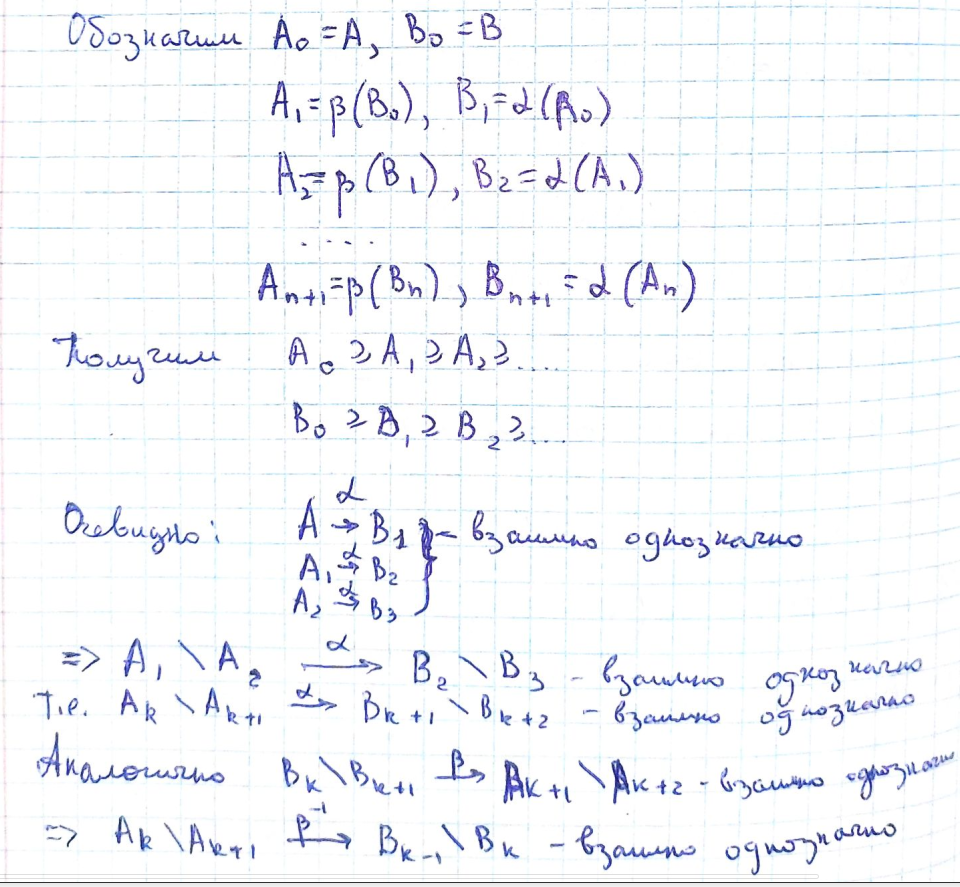 Обозначим A₀ = A, B₀ = B
A₁ = β(B₀), B₁ = α(A₀)
A₂ = β(B₁), B₂ = α(A₁)
. . . .
Aₙ₊₁ = β(Bₙ), Bₙ₊₁ = α(Aₙ)
Получим A₀ ⩾ A₁ ⩾ A₂ ⩾ ....
B₀ ⩾ B₁ ⩾ B₂ ⩾ ...
Очевидно: A →^α B₁ } – взаимно однозначно
A₁ →^α B₂
A₂ →^α B₃
=> A₁ \ A₂ →^α B₂ \ B₃ – взаимно однозначно
Т.е. Aₖ \ Aₖ₊₁ →^α Bₖ₊₁ \ Bₖ₊₂ – взаимно однозначно
Аналогично Bₖ \ Bₖ₊₁ →^β Aₖ₊₁ \ Aₖ₊₂ – взаимно однозначно
=> Aₖ \ Aₖ₊₁ →^β⁻¹ Bₖ₋₁ \ Bₖ – взаимно однозначно